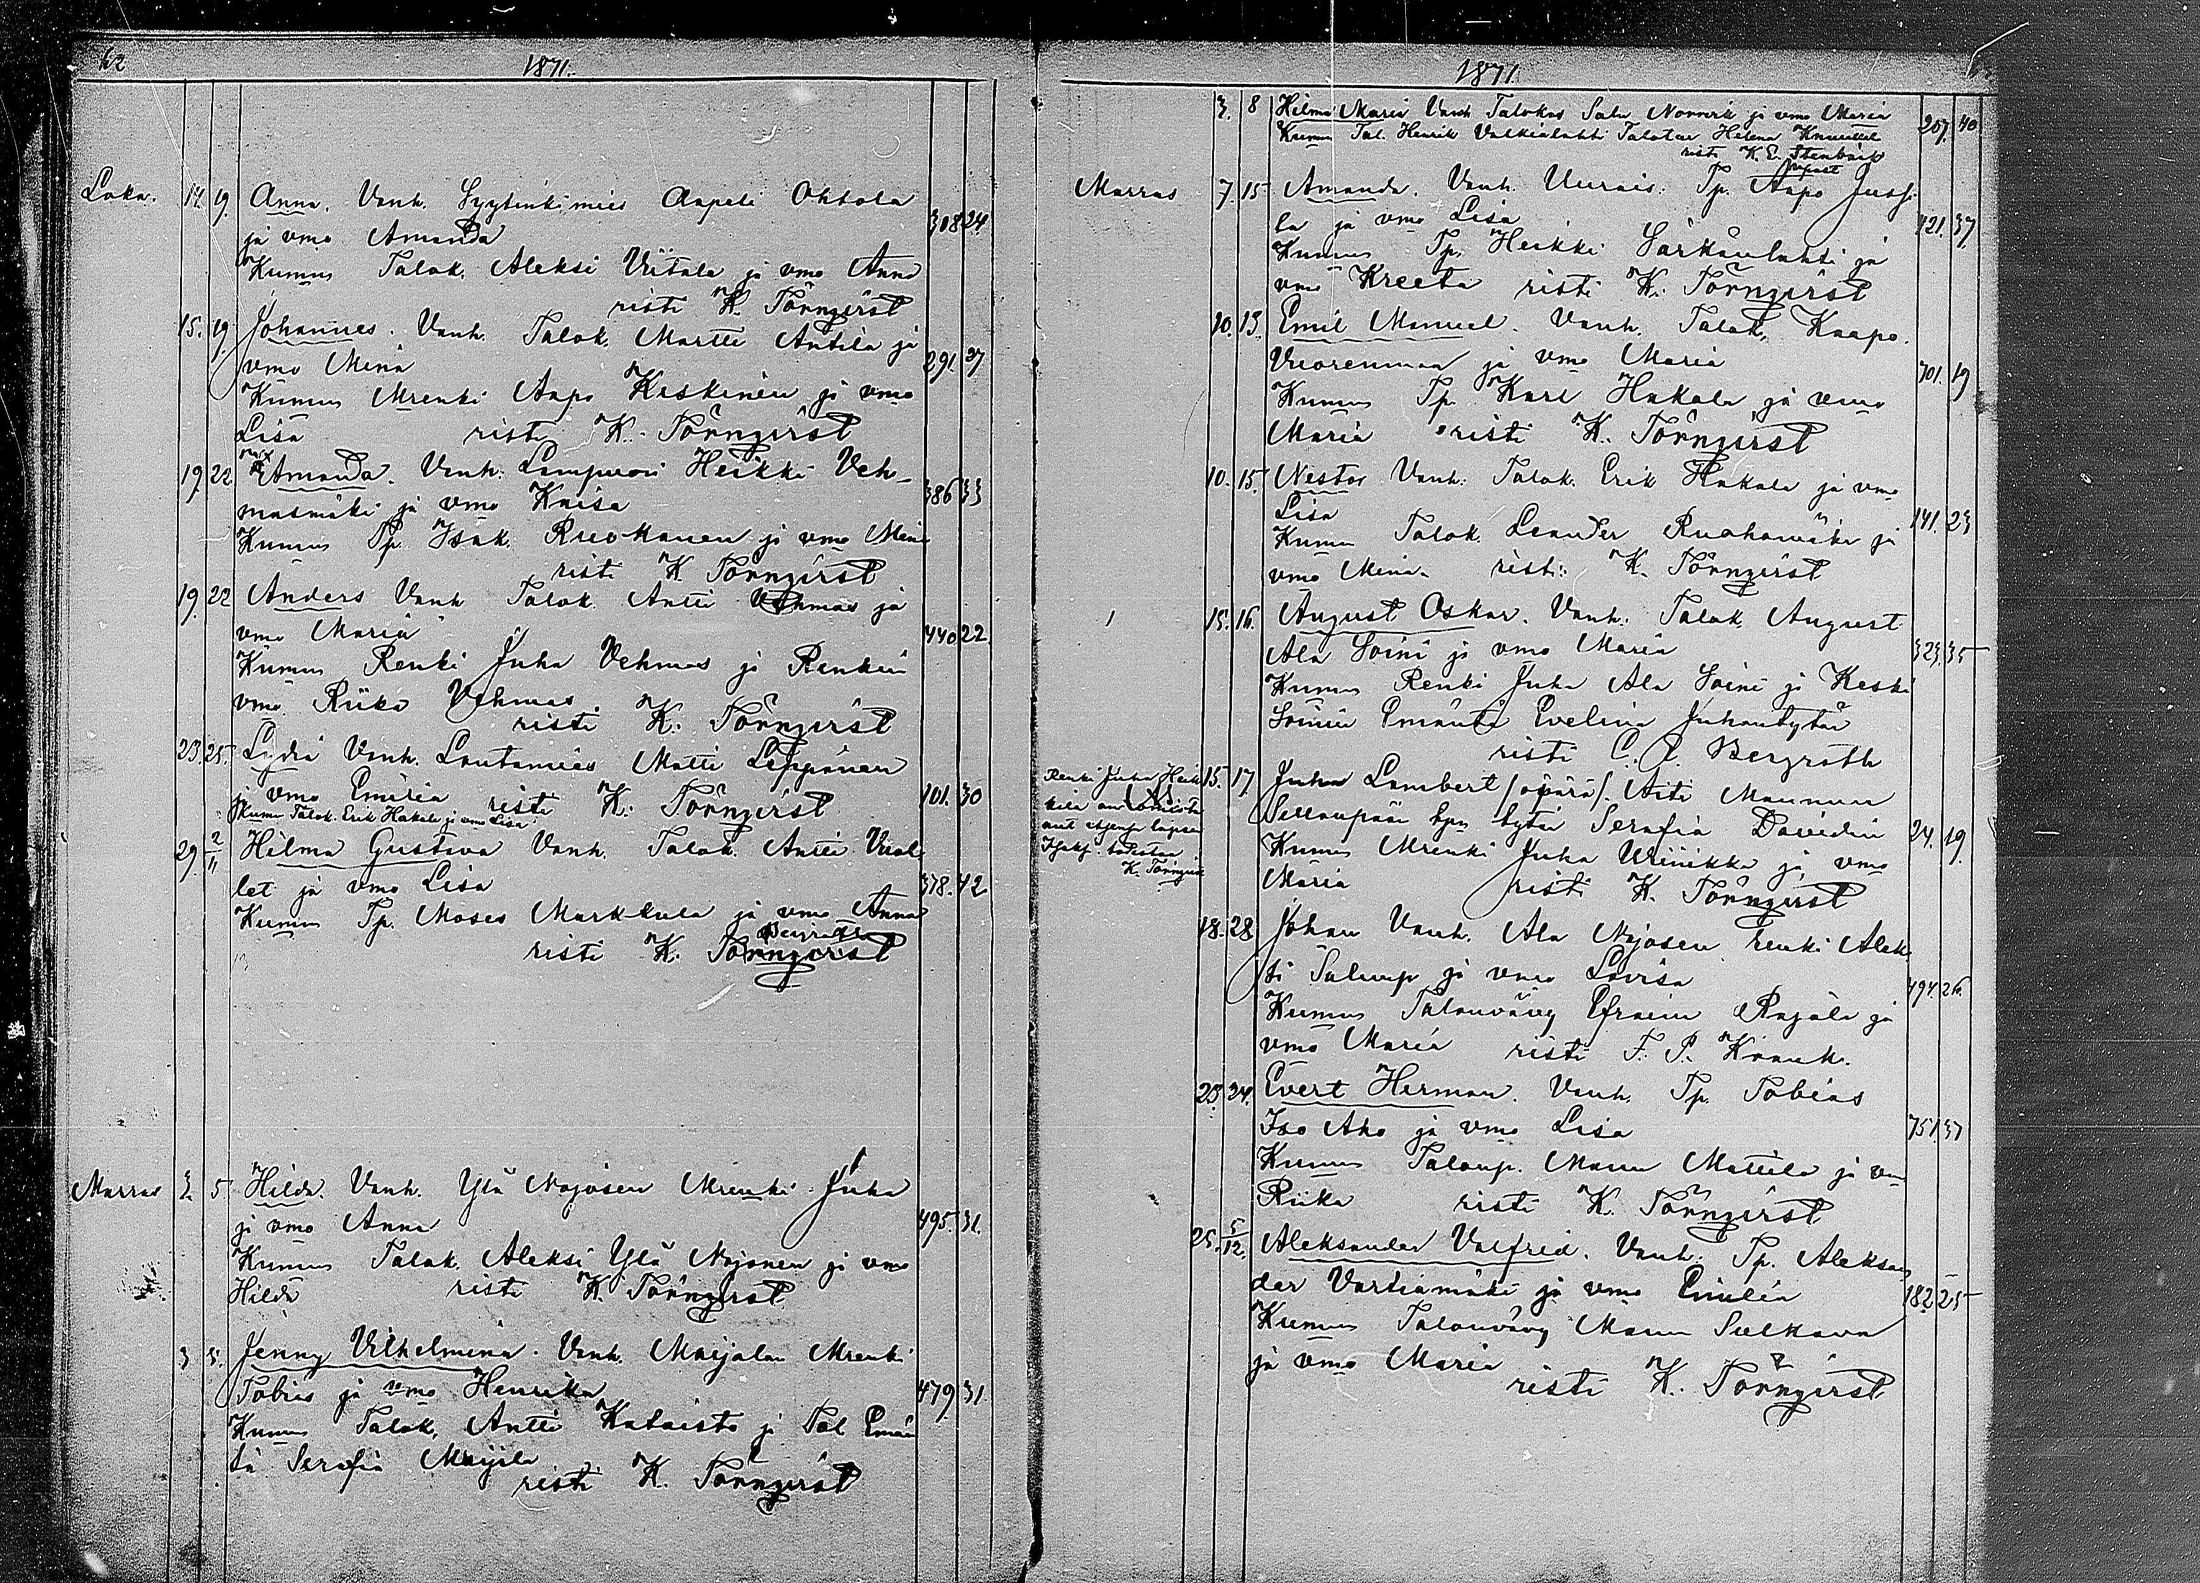 62
1871.
Loka. 11. 19. Anna. Vanh. Syytinkimies Aapeli Ohtola
ja vmo Amanda 308 24
Kumm Talok. Aleksi Viitala ja vmo Anna
risti K. Törnqvist
15. 19. Johannes. Vanh. Talok. Martti Antila ja
vmo Mina 291. 27
Kumm Mrenki Aapo Keskinen ja vmo
Lisa risti K. Törnqvist
19 22 Amanda. Vanh. Lampuoti Heikki Veh-
masmäki ja vmo Kaisa 386 33
Kumm Tp. Isak ja vmo Mina
risti K. Törnqvist
19. 22 Anders Vanh Talok. Antti Vehmas ja
vmo Maria 440 22
Kumm Renki Juha Vehmas ja Renkin
vmo Riika Vehmas.
risti K. Törnqvist
23. 25. Lydia Vanh. Lautamies Matti Leppänen
ja vmo risti K. Törnqvist 101. 30
Kumm Talok. Erik Hakala ja vmo Lisa
29. 2/11 Hilma Gustava Vanh. Talok. Antti
ja vmo Lisa 378. 42
Kumm Tp. Moses Markkula ja vmo Anna
risti K. Törnqvist
Marras 3. 5 Hilda. Vanh. Ylä Nojosen Mrenki Juha
ja vmo Anna 495. 31.
Kumm Talok. Aleksi Ylä Nojonen ja vmo
Hilda risti K. Törnqvist
3 5. Jenny Vilhelmina. Vanh. Maijalan Mrenki
Tobias ja vmo Henrika 479. 31.
Kumm Talok. Antti Kataisto ja Tal Emän
tä Serafia Maijala
risti K. Törnqvist
1871
3. 8 Hilma Maria Vanh Talokas Salu ja vmo Maria
Kumm Tal. Henrik Valkialahti Talotar Helena 207. 40
risti K. E. Stenbäck
Marras 7. 15 Amanda. Vanh. Uurais. Tp. Aapo Jussi
la ja vmo Lisa 421. 37
Kumm Tp. Heikki Särkänlahti ja
vmo Kreeta risti K. Törnqvist
10. 13. Emil Manuel. Vanh. Talok. Kaapo.
Vuorenmaa ja vmo Maria 701. 19
Kumm Tp. Karl Hakala ja vmo
Maria risti K. Törnqvist
10. 15. Nestor Vanh. Talok. Erik Hakala ja vmo
Lisa 141. 23
Kumm Talok. Leander Ruohomäki ja
vmo Mina. risti: K. Törnqvist
15. 16. August Oskar. Vanh. Talok. August
Ala Soini ja vmo Maria 323. 35
Kumm Renki Juha Ala Soini ja Keski
Soinin Emäntä Evelina Juhantytär
risti C. A. Bergroth
15. 17 Juha Lambert (äpärä). Äiti Mannun
tytär Serafia Davidin 24. 19.
Kumm Mrenki Juha Viinikka ja vmo
Maria risti K. Törnqvist
Renki Juha
K. Törnqvist
18. 28 Johan Vanh. Ala Nojosen renki Alek
si ja vmo Lovisa 494. 26.
Kumm Talonvävy Efraim Rajala ja
vmo Maria risti F. P. Krank.
23. 24. Evert Herman. Vanh. Tp. Tobias
Iso Aho ja vmo Lisa 751. 37
Kumm Talonp. Manu Mattila ja vmo
Riika risti K. Törnqvist
25. 5/12. Aleksander Valfrid. Vanh. Tp. Aleksan
der Vartiamäki ja vmo Emilia 182 25
Kumm Talonvävy Manu Sulkava
ja vmo Maria
risti K. Törnqvist